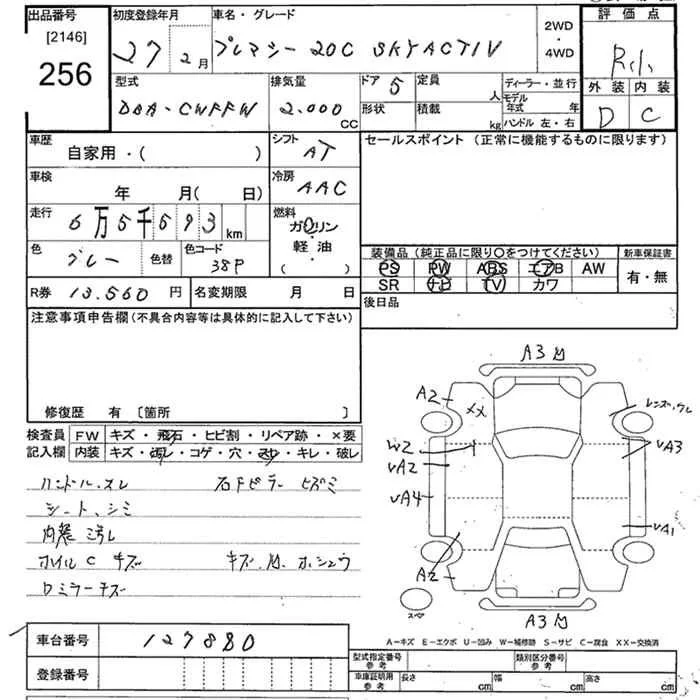 出品番号 初度登録年月 車名・グレード 2WD・4WD 評価点
[2146]
256 27年 2月 プレマシー 20C SKYACTIV
外装 内装
D C
型式 排気量 ドア 5 定員 人 ディーラー・並行
DBA-CWFFW 2.000 CC 形状 積載 kg モデル年式 年
ハンドル 左・右
車歴 シフト セールスポイント (正常に機能するものに限ります)
自家用・( ) AT
車検 冷房
年 月( 日) AAC
走行 燃料
6万5千593 km ガソリン
色 色替 色コード 軽油
グレー 38P ( )
装備品 (純正品に限り○をつけてください) 新車保証書
PS PW ABS エアB AW 有・無
SR ナビ TV カワ
R券 13.560 円 名変期限 月 日 後日品
注意事項申告欄 (不具合内容等は具体的に記入して下さい)
修復歴 有 [箇所 ]
検査員 FW キズ・飛石・ヒビ割・リペア跡・×要
記入欄 内装 キズ・汚レ・コゲ・穴・スレ・キレ・破レ
ハンドル スレ 右Fピラー ヒズミ
シート、シミ
内装 汚レ
ホイルC キズ キズ.M.ホシュウ
ロミラーキズ
A3 M
A2 XX レンズ.ワレ
W2 vA3
vA2
vA4
vA1
A2
スペア A3 M
A-キズ E-エクボ U-凹み W-補修跡 S-サビ C-腐食 XX-交換済
車台番号 127880
登録番号
型式指定番号 参考 類別区分番号 参考
車庫証明用 参考 長さ cm 幅 cm 高さ cm